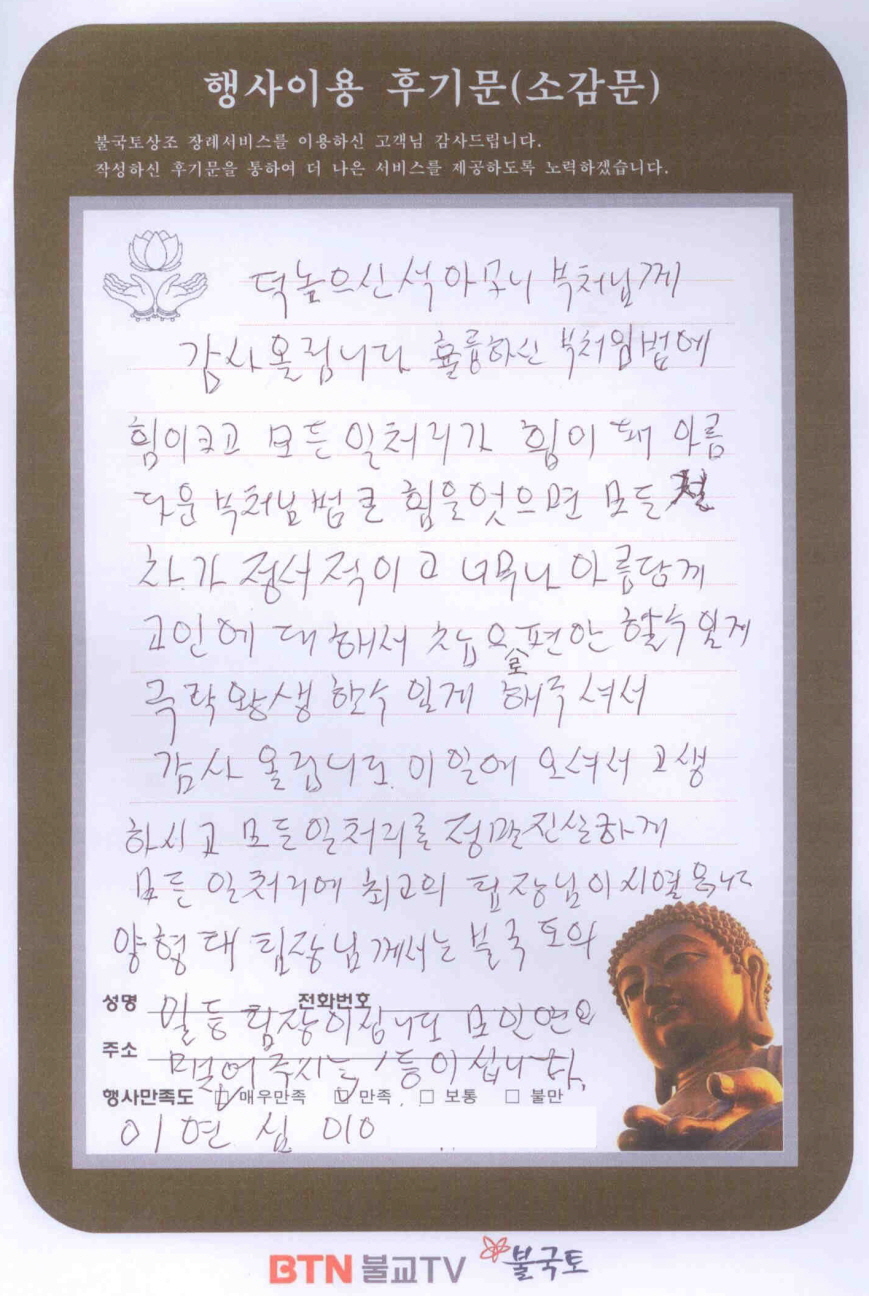 행사이용 후기문(소감문)
불국토상조 장례서비스를 이용하신 고객님 감사드립니다.
작성하신 후기문을 통하여 더 나은 서비스를 제공하도록 노력하겠습니다.
덕높으신 석아모니 부처님께
감사올립니다 훌륭하신 부처임법에
힘이크고 모든일처리가 힘이 돼 아름
다운 부처님법 큰 힘을얻으면 모든 절
차가 정서적이고 너무나 아름답게
고인에 대해서 참으로 편안 할수 있게
극락왕생 한수 있게 해주셔서
감사 올립니다. 이일에 오셔서 고생
하시고 모든일처리를 진실하게
모든 일처리에 최고의 팀장님이시였
양형태 팀장님께서는 불국토의
성명 전화번호
일등 팀장이십니다
주소
1등이십니다.
행사만족도 □ 매우만족 □ 만족 □ 보통 □ 불만
이연심 010
BTN 불교TV 불국토